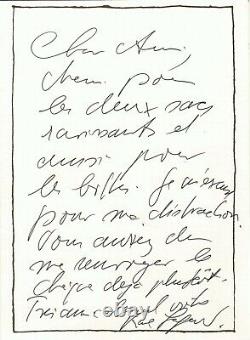 Cher Ami,
Merci pour
les deux sacs
ravissants et
aussi pour
les billets. Je m'excuse
pour ma distraction.
Vous auriez du
me renvoyer le
chèque deja plutôt.
votre
Karl